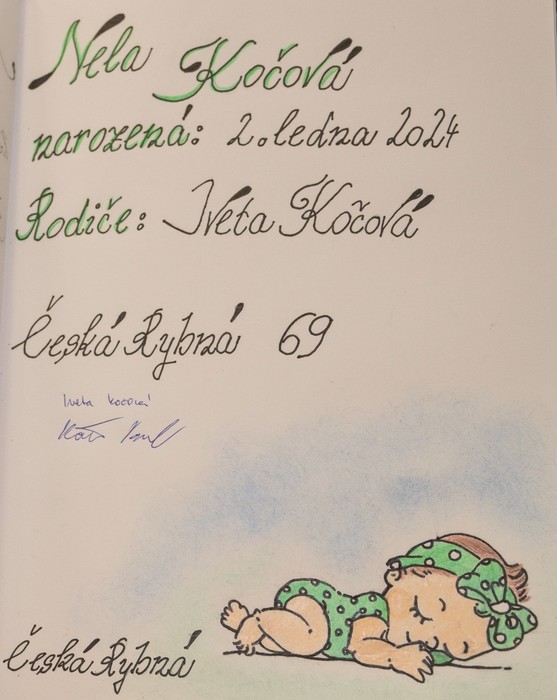 Nela Kočová
narozená: 2. ledna 2024
Rodiče: Iveta Kočová
Česká Rybná 69
Iveta Kočová
Česká Rybná